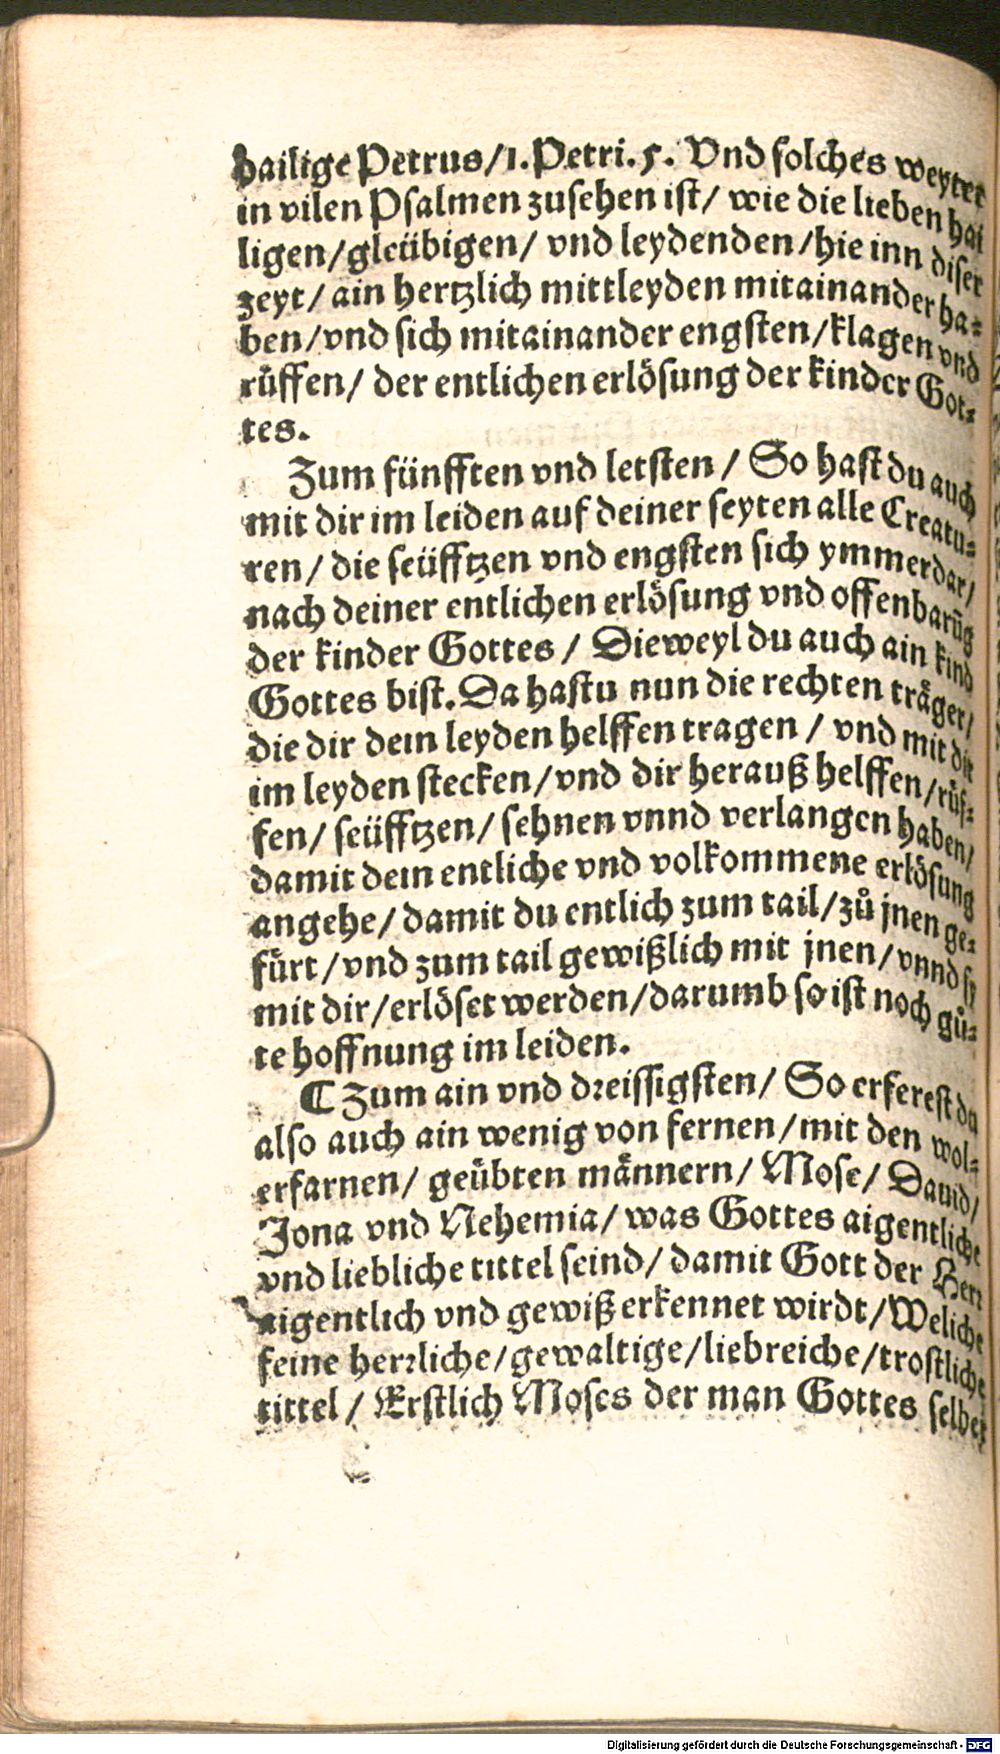 hailige Petrus/1. Petri. 5. Vnd solches weyter
in vilen Psalmen zusehen ist/ wie die lieben hai
ligen/gleübigen/ vnd leydenden/hie inn diser
zeyt/ ain hertzlich mittleyden mitainander ha⸗
ben/vnd sich mitainander engsten/klagen vnd
růffen/ der entlichen erlösung der kinder Got⸗
tes.
Zum fünfften vnd letsten / So hast du auch
mit dir im leiden auf deiner seyten alle Creatu⸗
ren/ die seüfftzen vnd engsten sich ymmerdar/
nach deiner entlichen erlösung vnd offenbarūg
der kinder Gottes / Dieweyl du auch ain kind
Gottes bist. Da hastu nun die rechten träger/
die dir dein leyden helffen tragen / vnd mit dir
im leyden stecken/vnd dir herauß helffen/růf⸗
fen/ seüfftzen/ sehnen vnnd verlangen haben/
damit dein entliche vnd volkommene erlösung
angehe/ damit du entlich zum tail/zů jnen ge⸗
fürt/vnd zum tail gewißlich mit jnen/vnnd sy
mit dir/erlöset werden/darumb so ist noch gů⸗
te hoffnung im leiden.
¶ Zum ain vnd dreissigsten/ So erferest du
also auch ain wenig von fernen/mit den wol⸗
erfarnen/ geübten männern/ Mose/ Dauid/
Jona vnd Nehemia/ was Gottes aigentliche
vnd liebliche tittel seind/ damit Gott der Herr
aigentlich vnd gewiß erkennet wirdt/Weliche
seine herrliche/gewaltige/liebreiche/trostliche
tittel/ Erstlich Moses der man Gottes selber
Digitalisierung gefördert durch die Deutsche Forschungsgemeinschaft - DFG